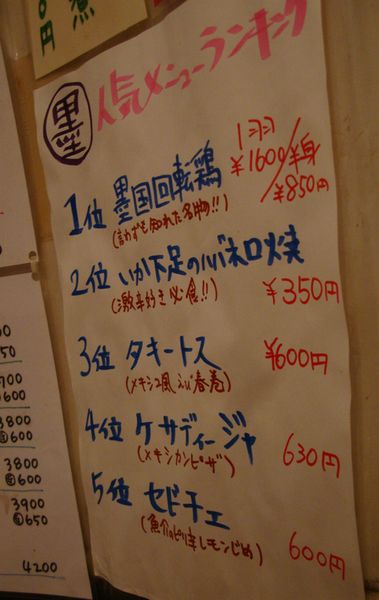 煮
0円
墨 人気メニューランキング
1羽 ¥1600/半身 ¥850円
1位 墨国回転鶏
(言わずも知れた名物!!)
2位 いか下足のハバネロ焼
(激辛好き必食!!)
¥350円
3位 タキートス
(メキシコ風 春巻)
¥600円
4位 ケサディージャ
(メキシカンピザ)
630円
5位 セビチェ
(魚介のピリ辛レモンじめ)
600円
00
50
700
600
3800
600
3800
600
3900
650
4200